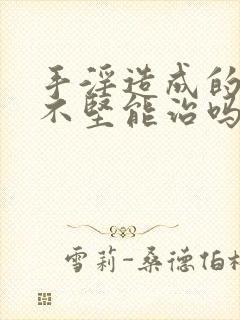 手淫造成的
不坚能治吗
雪莉-桑德伯格